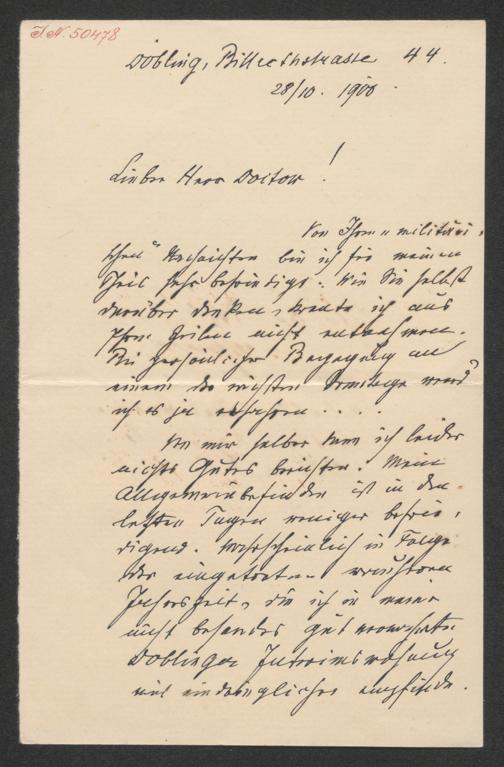 I.N. 50478
Döbling, Billrothstrasse 44.
28/10. 1900.
Lieber Herr Doctor!
Von Ihren „militäri-
schen" Nachrichten bin ich für meinen
Theil sehr befriedigt. Wie Sie selbst
darüber denken, konnte ich aus
Ihren Zeilen nicht entnehmen.
Bei persönlicher Begegnung an
einem der nächsten Sonntage werd'
ich es ja erfahren . . . .
Von mir selber kann ich leider
nichts Gutes berichten. Mein
Allgemeinbefinden ist in den
letzten Tagen weniger befrie-
digend. Wahrscheinlich in Folge
der eingetretenen rauheren
Jahreszeit, die ich in meiner
nicht besonders gut verwahrten
Döblinger Interimswohnung
viel eindringlicher empfinde.